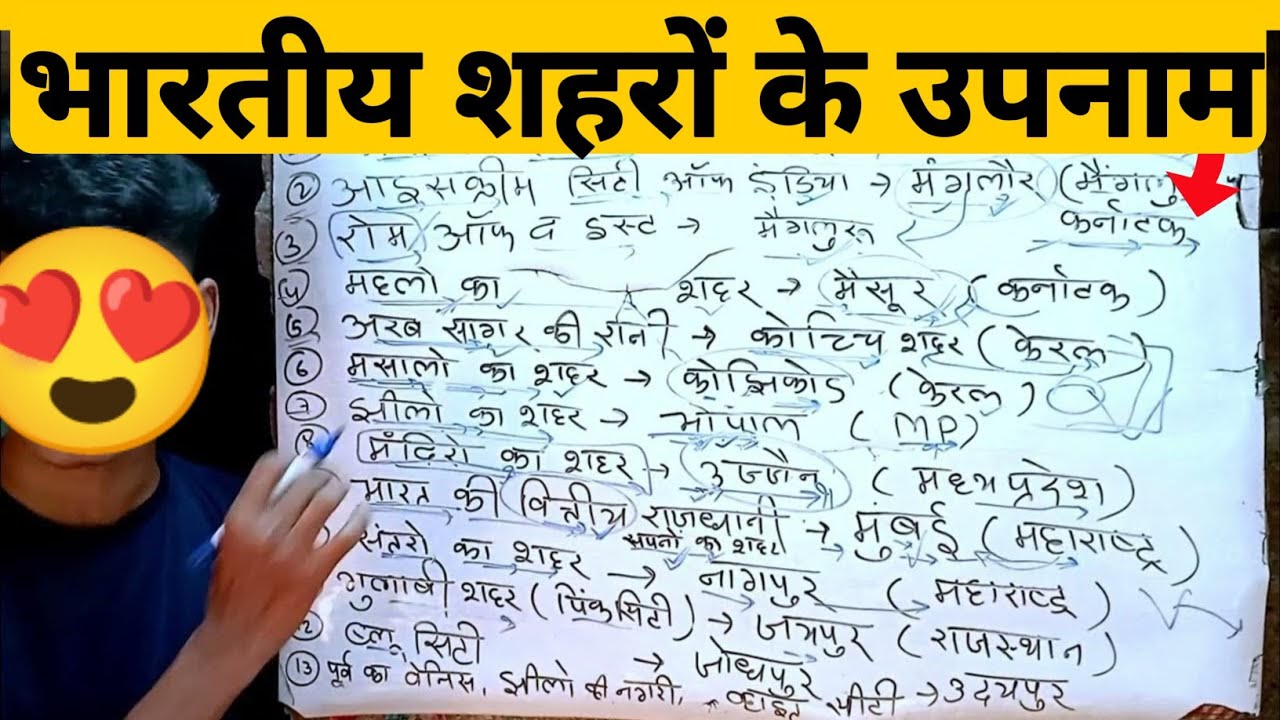 भारतीय शहरों के उपनाम
② आइसक्रीम सिटी ऑफ इंडिया → मंगलौर
③ रोम ऑफ द इस्ट → मैंगलुरू कर्नाटक
महलो का शहर → मैसूर (कर्नाटक)
⑤ अरब सागर की रानी → कोच्चि शहर (केरल)
⑥ मसालो का शहर → कोझिकोड (केरल)
⑦ झीलो का शहर → भोपाल (MP)
मंदिरो का शहर → उज्जैन (मध्यप्रदेश)
भारत की वित्तीय राजधानी → मुंबई (महाराष्ट्र)
सपनों का शहर
संतरो का शहर → नागपुर (महाराष्ट्र)
गुलाबी शहर (पिंकसिटी) → जयपुर (राजस्थान)
ब्लू सिटी → जोधपुर
⑬ पूर्व का वेनिस, झीलो की नगरी, व्हाइट सीटी → उदयपुर